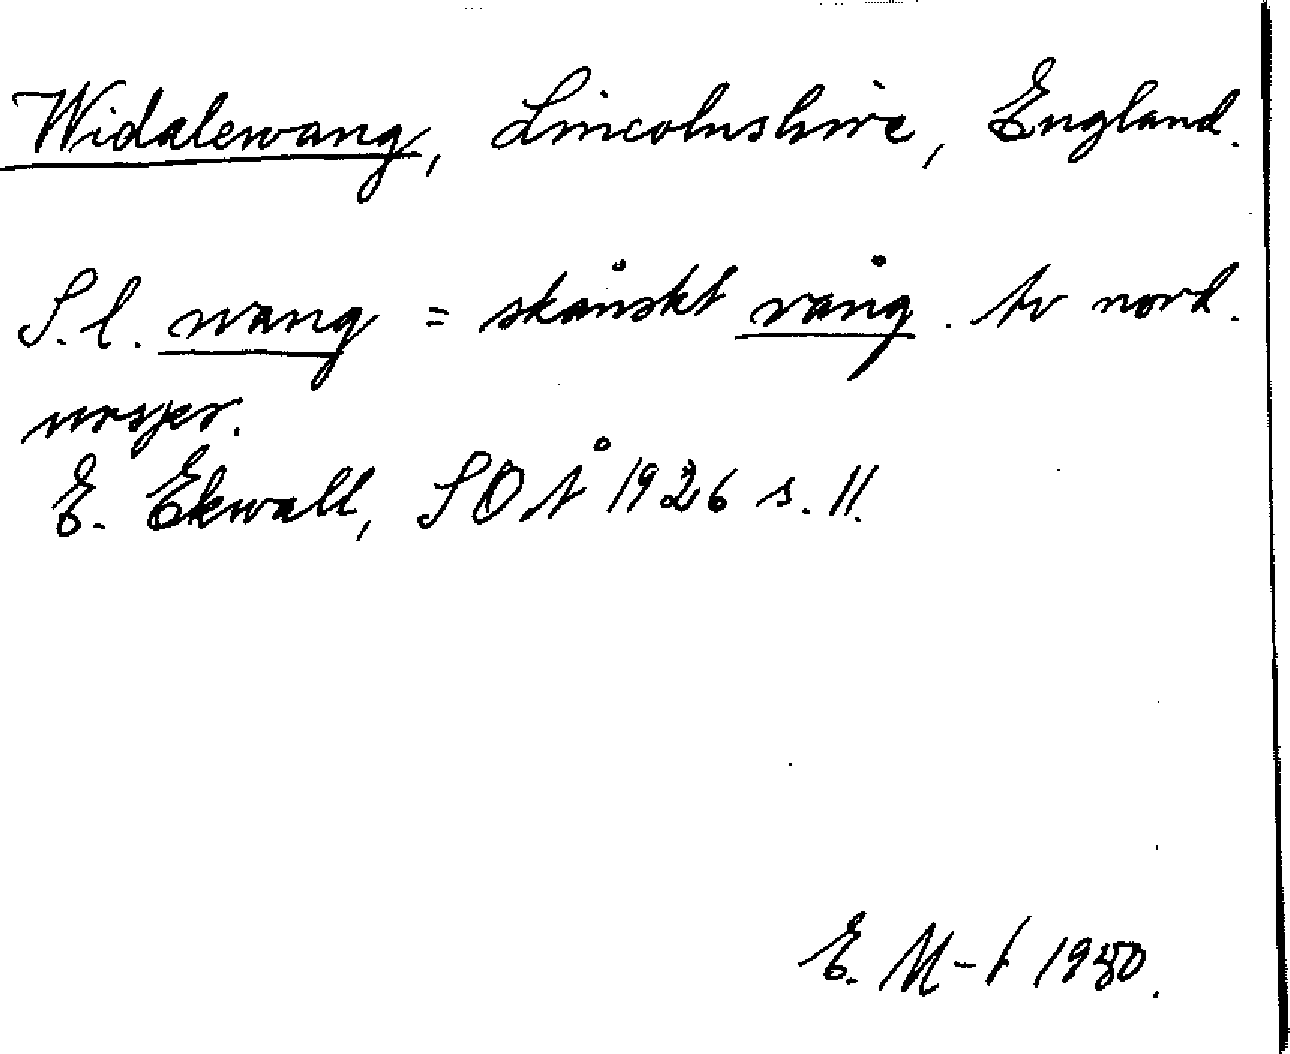 Widalewang, Lincolnshire, England.
S.l. wang = skånskt vång. Av nord.
urspr.
E. Ekwall, SOÅ 1926 s. 11.
E. M-t 1980.